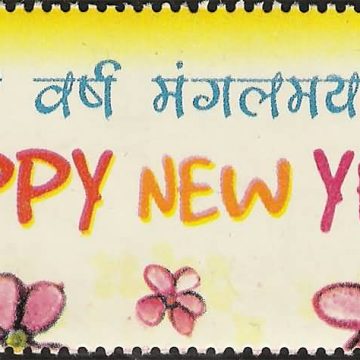 वर्ष मंगलमय
PPY NEW Y